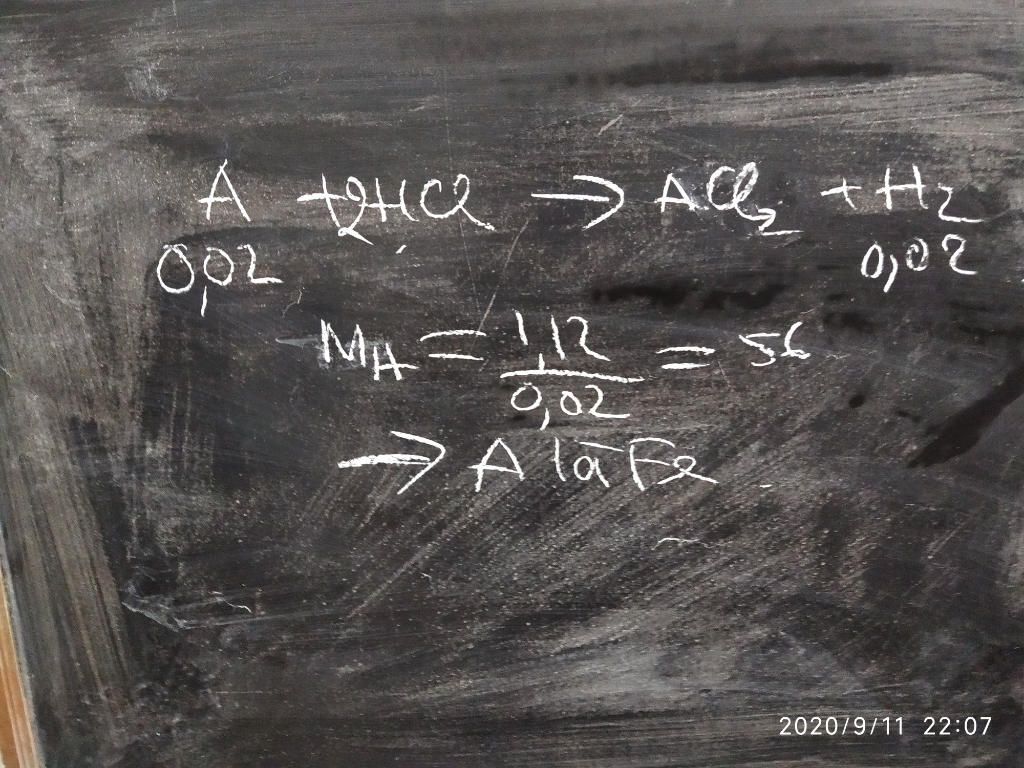 A + 2HCl → ACl₂ + H₂
0,02 0,02
M_A = 1,12/0,02 = 56
→ A là Fe
2020/9/11 22:07